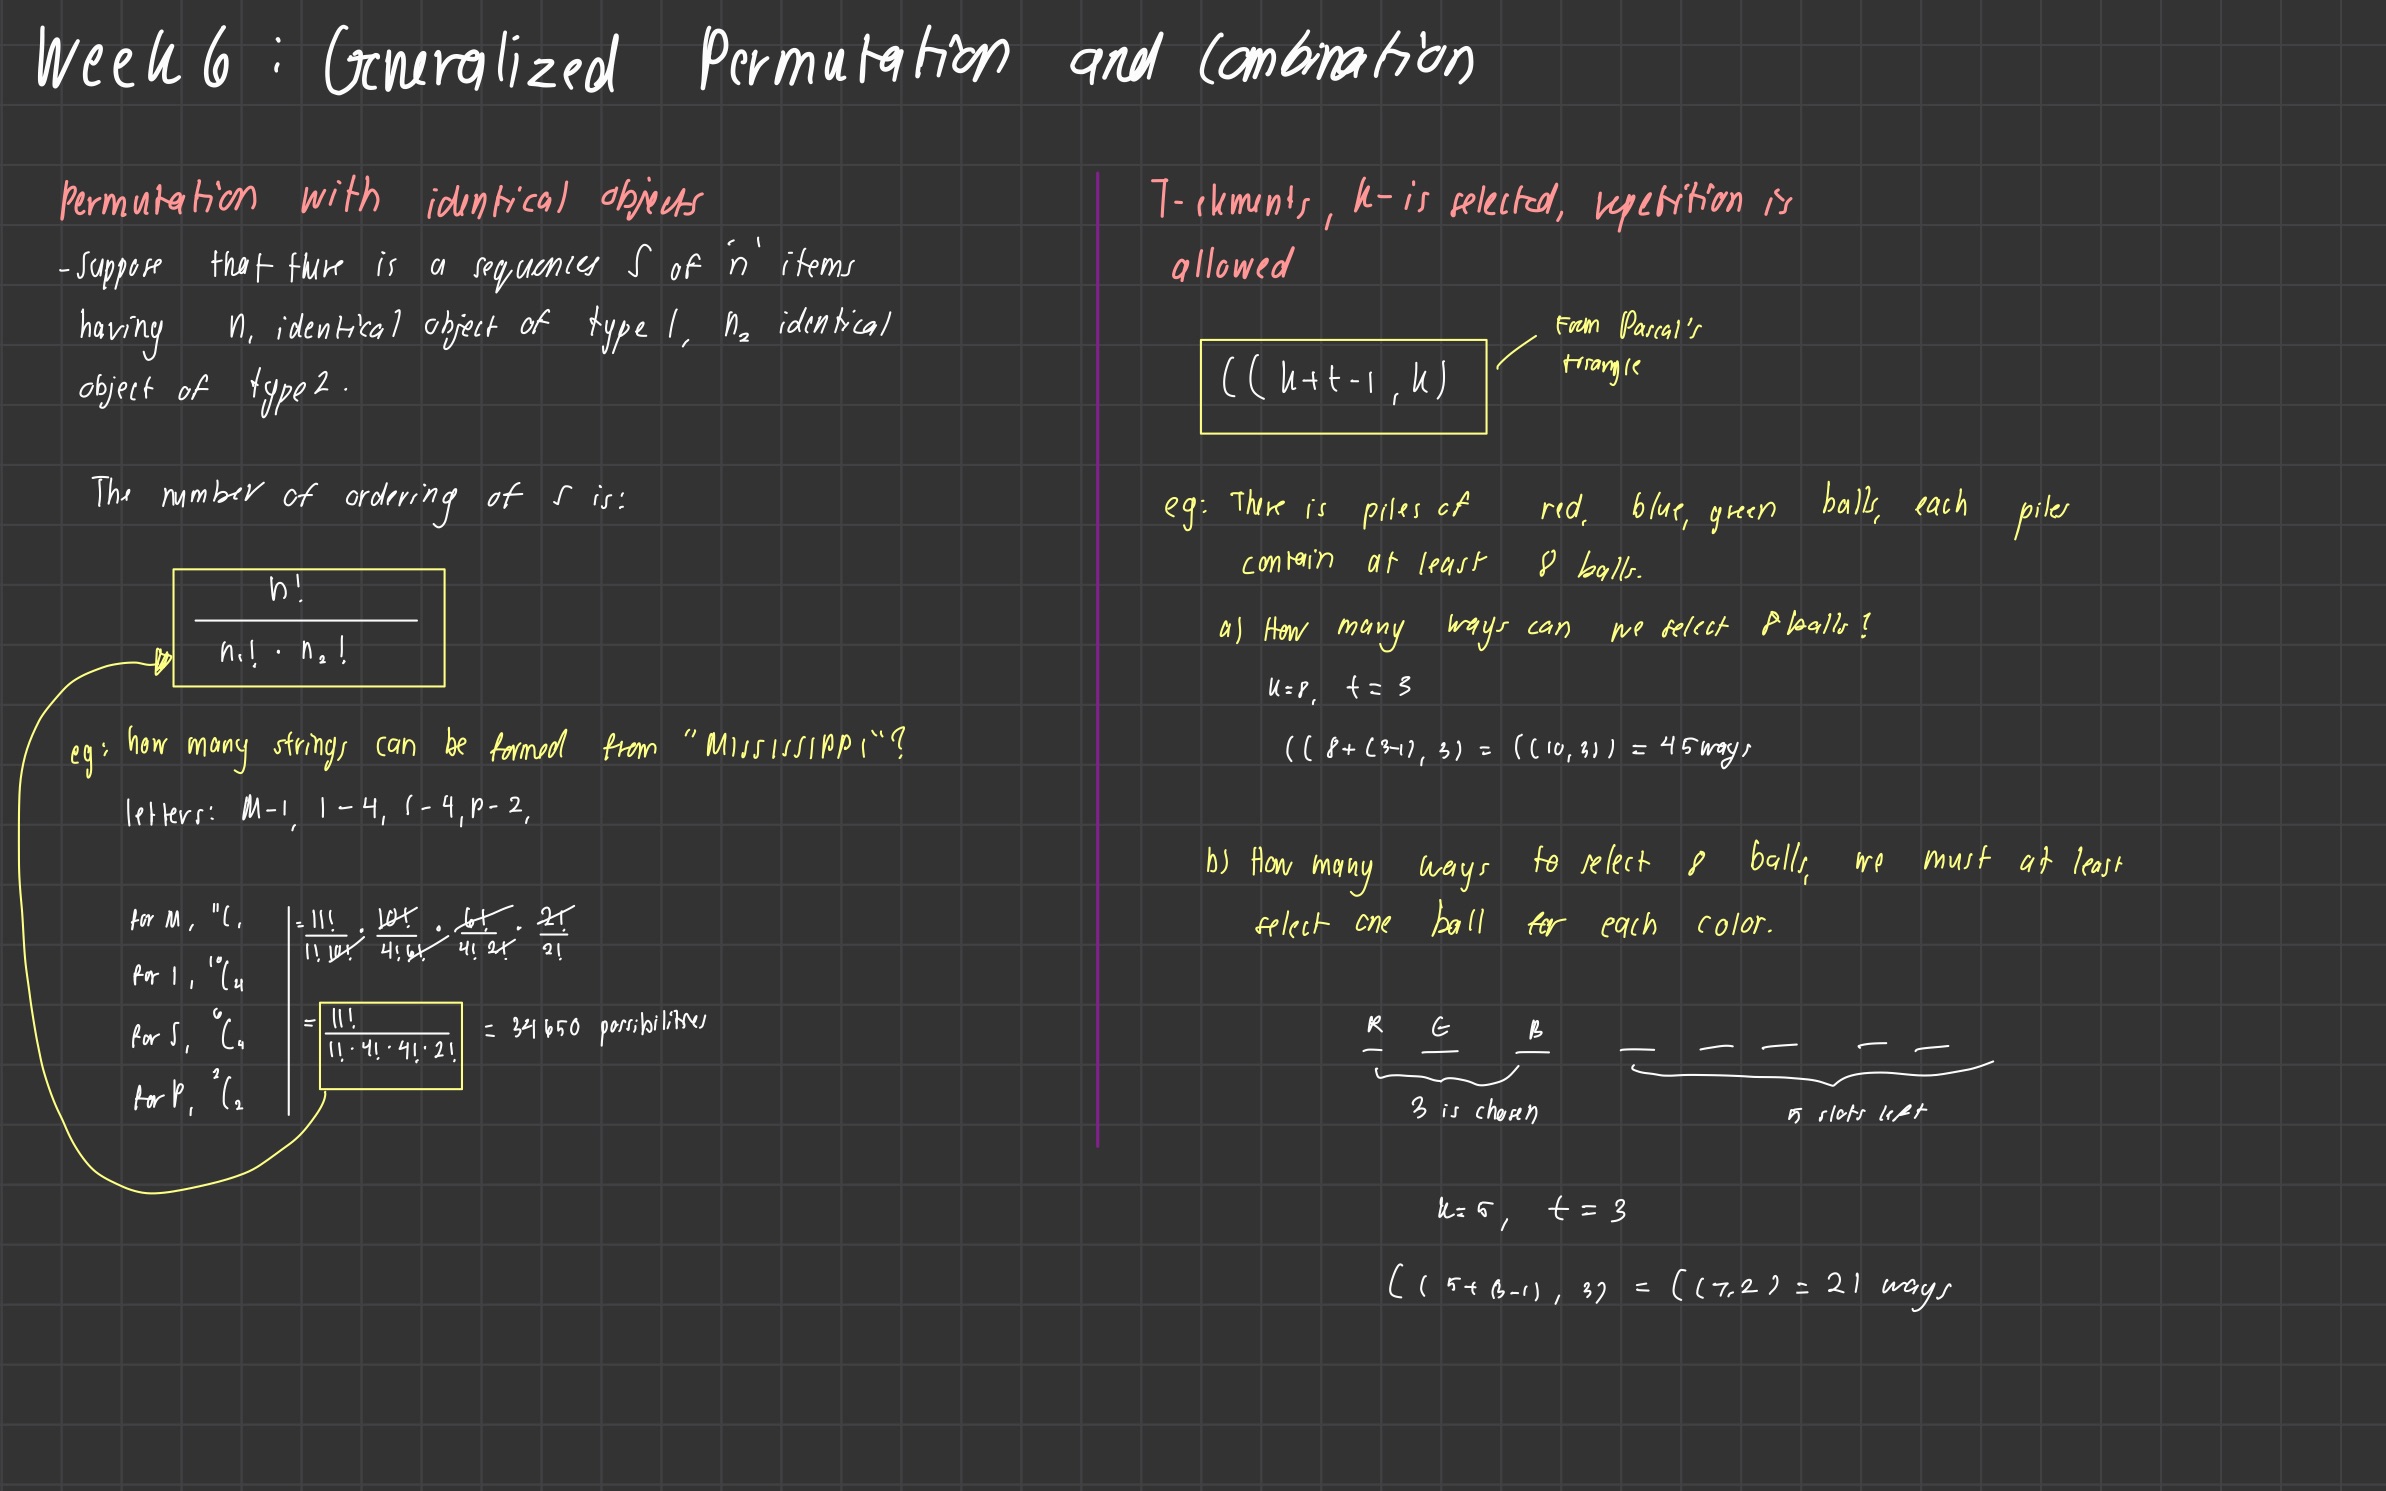 Week 6 : Generalized Permutation and Combination
Permutation with identical objects
- Suppose that there is a sequences S of 'n' items
having n₁ identical object of type 1, n₂ identical
object of type 2.
The number of ordering of S is:
n!
n₁! · n₂!
eg: how many strings can be formed from "MISSISSIPPI"?
letters: M-1, I-4, S-4, P-2,
for M, ¹¹C₁
for I, ¹⁰C₄
for S, ⁶C₄
for P, ²C₂
= 11!/1! 10! · 10!/4! 6! · 6!/4! 2! · 2!/2!
= 11!/1! · 4! · 4! · 2! = 34650 possibilities
T-elements, k-is selected, repetition is
allowed
C(k+t-1, k)
From Pascal's
triangle
eg: There is piles of red, blue, green balls, each piles
contain at least 8 balls.
a) How many ways can we select 8 balls?
k=8, t=3
C(8+(3-1), 3) = C(10,3)) = 45 ways
b) How many ways to select 8 balls, we must at least
select one ball for each color.
R G B
3 is chosen 5 slots left
k=5, t=3
C(5+(3-1), 3) = C(7,2) = 21 ways